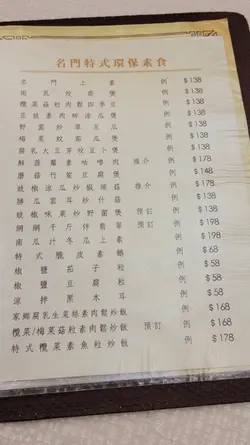 名門特式環保素食
名門上素 例 $138
南乳炆齋煲 例 $138
欖菜菇粒肉鬆四季豆 例 $138
豆豉素肉鬆涼瓜煲 例 $138
野菌炒翠玉瓜 例 $138
梅菜炆茄瓜煲 例 $138
腐乳大豆芽炆豆卜煲 例 $138
鮮菠蘿素咕嚕肉 推介 例 $178
蘑菇竹笙豆腐煲 例 $148
豉椒涼瓜炒猴頭菇 推介 例 $158
勝瓜雲耳炒什菇 例 $138
豉椒味菜炒野菌煲 預訂 例 $198
預訂 例 $198
南瓜汁冬瓜上素 例 $138
特式脆皮素鵝 例 $68
椒鹽茄子粒 例 $58
椒鹽豆腐粒 例 $58
涼拌黑木耳 例 $58
家鄉腐乳生菜絲素肉鬆炒飯 例 $168
欖菜/梅菜菇粒素肉鬆炒飯 預訂 例 $168
特式欖菜素魚粒炒飯 例 $178